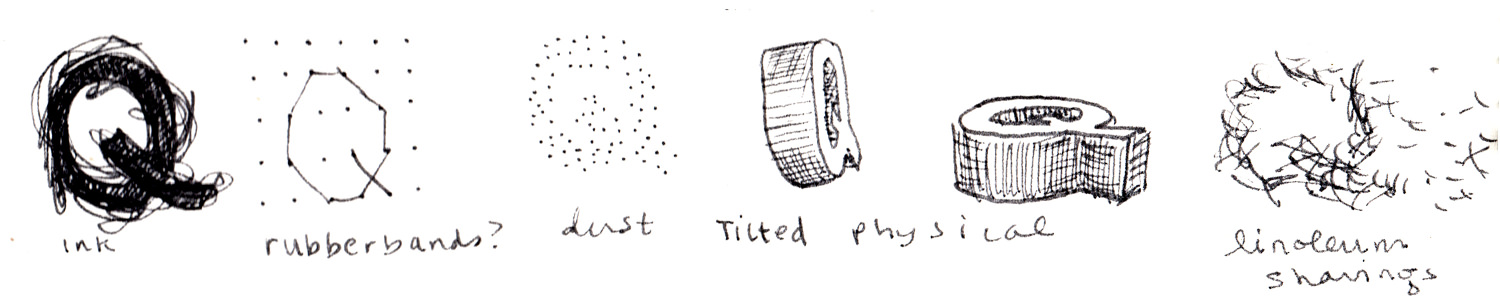 Q Q Q Q Q Q
ink
rubberbands?
dust
Tilted physical
linoleum
shavings